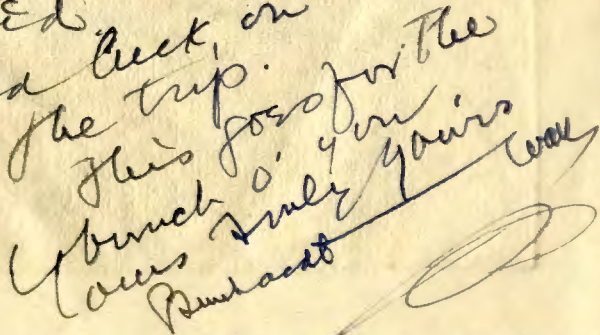 Ed.
d luck, on
the trip.
This goes for the
bunch o' you
Yours truly Yours